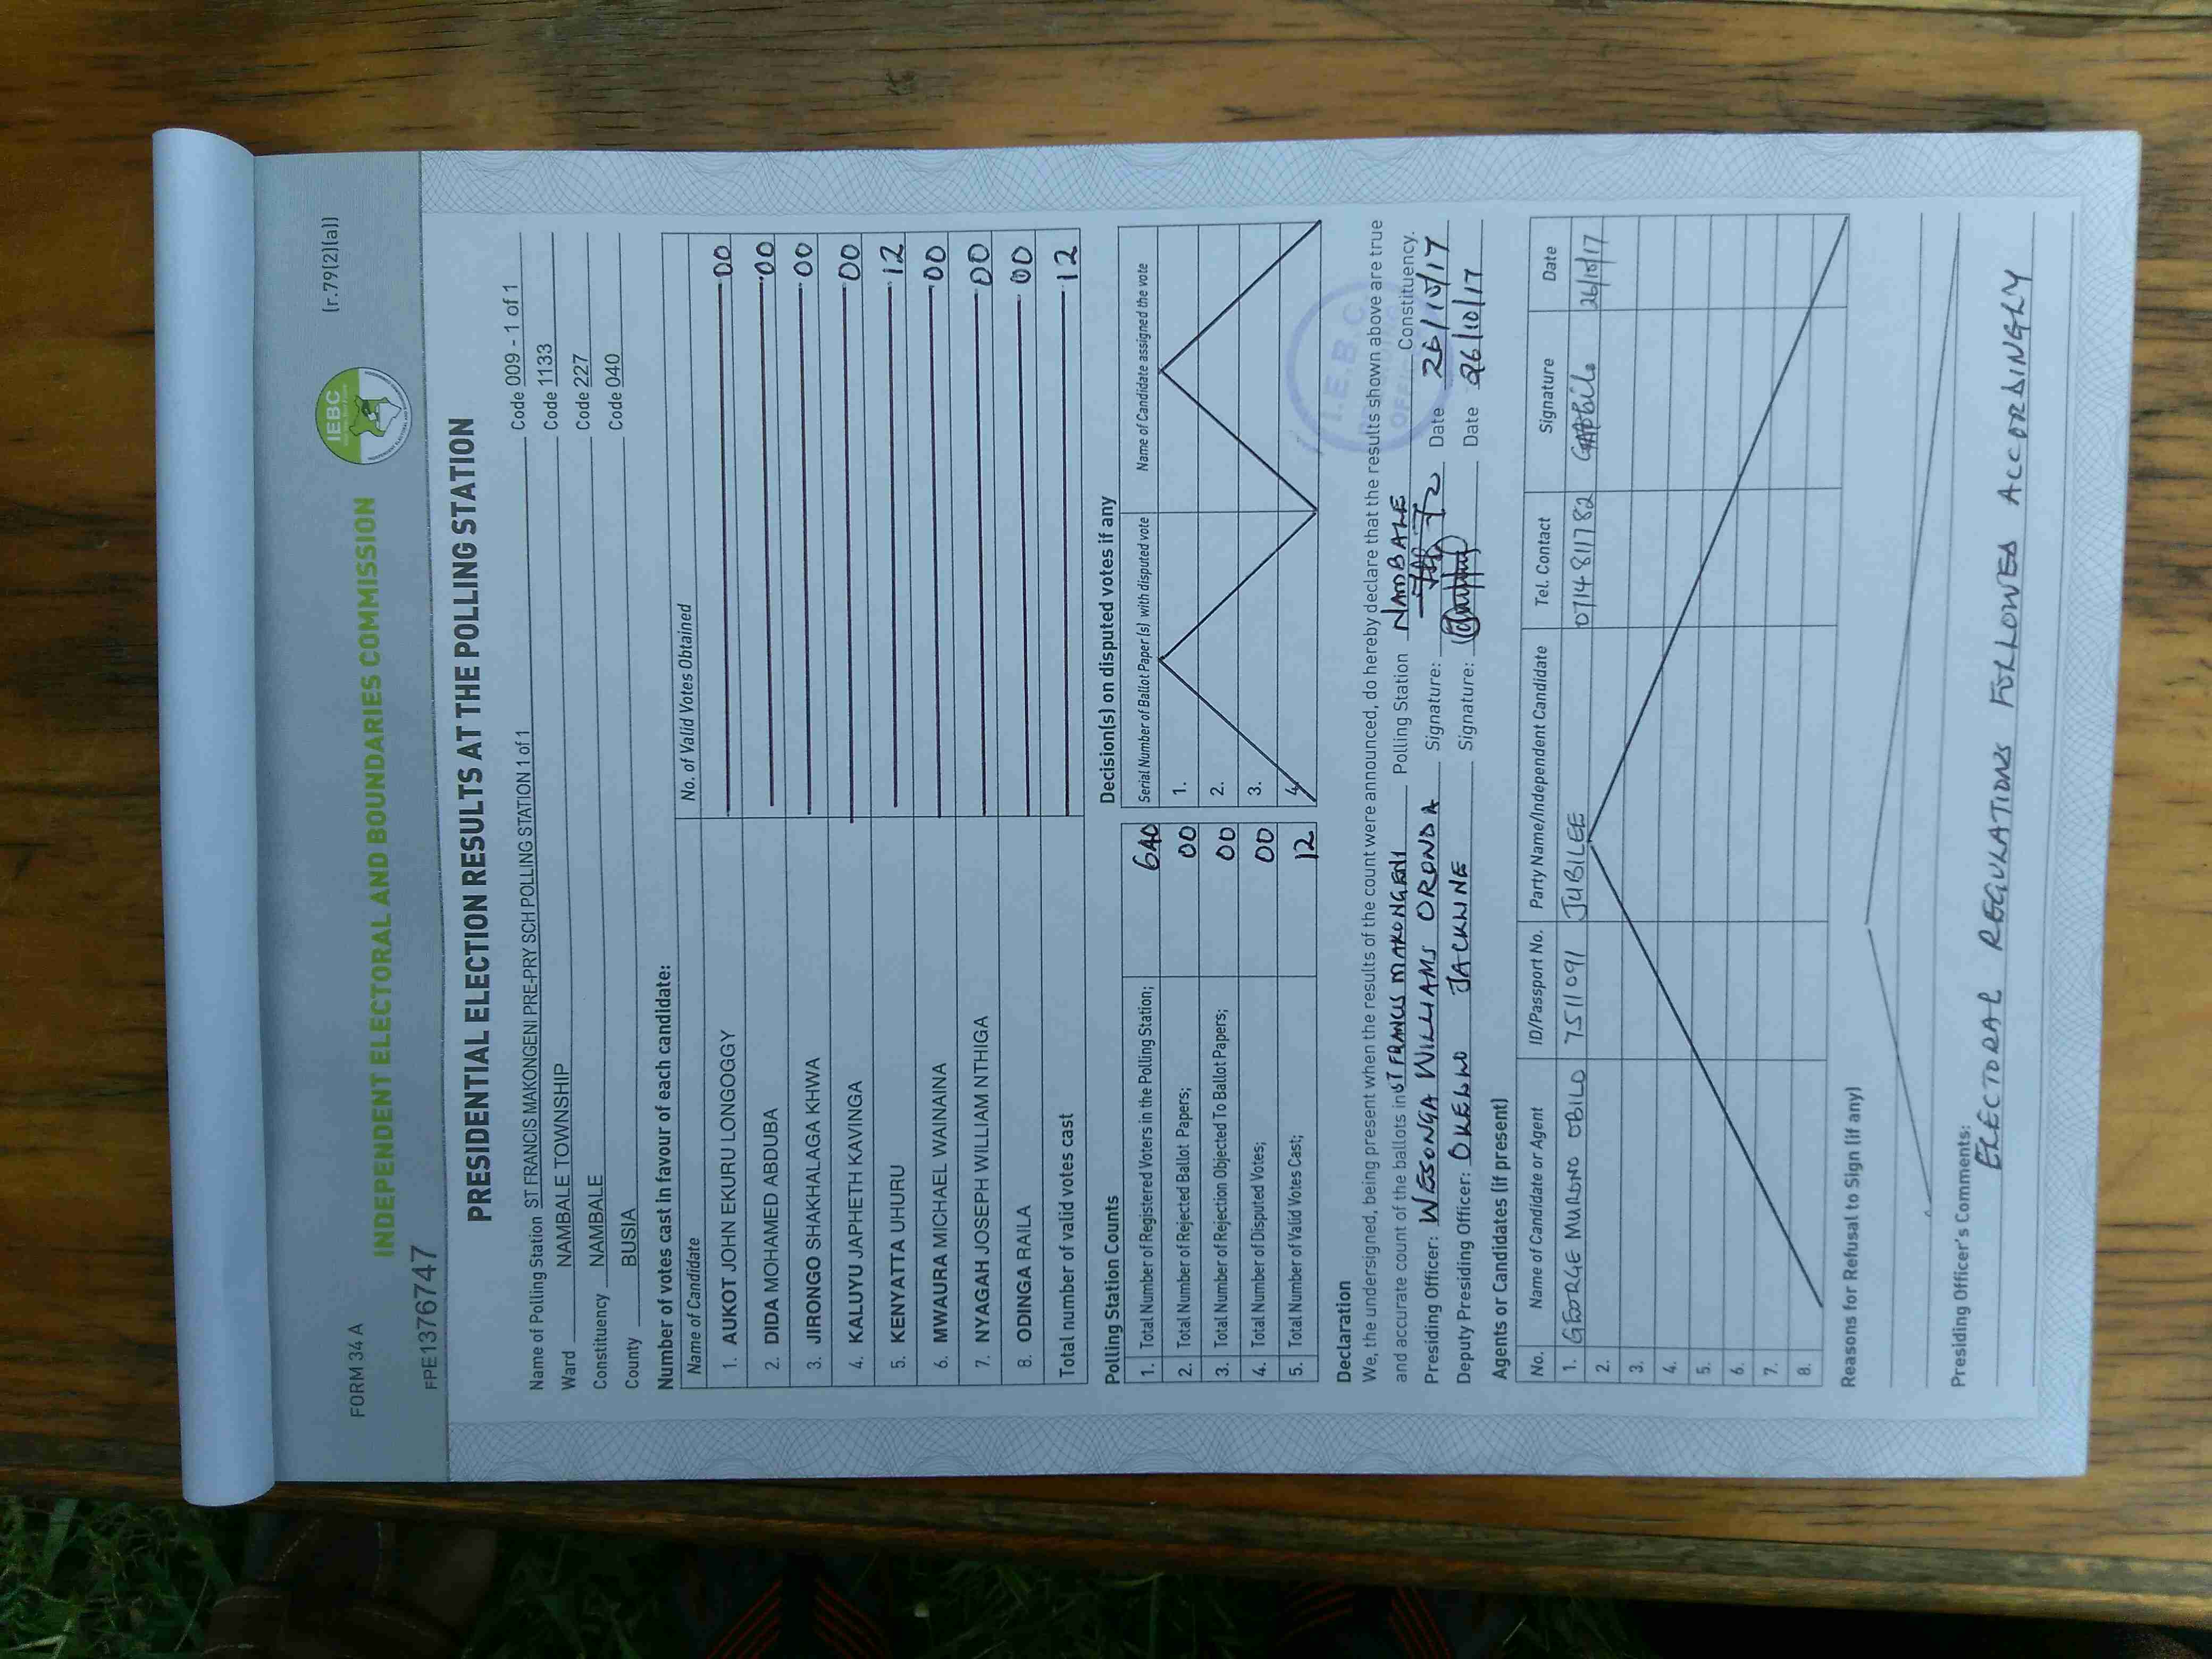 FORM 34 A
(r.79(2)(a))
IEBC
INDEPENDENT ELECTORAL AND BOUNDARIES COMMISSION
FPE1376747
PRESIDENTIAL ELECTION RESULTS AT THE POLLING STATION
Name of Polling Station ST FRANCIS MAKONGENI PRE-PRY SCH POLLING STATION 1 of 1 Code 009 - 1 of 1
Ward NAMBALE TOWNSHIP Code 1133
Constituency NAMBALE Code 227
County BUSIA Code 040
Number of votes cast in favour of each candidate:
Name of Candidate No. of Valid Votes Obtained
1. AUKOT JOHN EKURU LONGOGGY 00
2. DIDA MOHAMED ABDUBA 00
3. JIRONGO SHAKHALAGA KHWA 00
4. KALUYU JAPHETH KAVINGA 00
5. KENYATTA UHURU 12
6. MWAURA MICHAEL WAINAINA 00
7. NYAGAH JOSEPH WILLIAM NTHIGA 00
8. ODINGA RAILA 00
Total number of valid votes cast 12
Polling Station Counts
1. Total Number of Registered Voters in the Polling Station; 640
2. Total Number of Rejected Ballot Papers; 00
3. Total Number of Rejection Objected To Ballot Papers; 00
4. Total Number of Disputed Votes; 00
5. Total Number of Valid Votes Cast; 12
Decision(s) on disputed votes if any
Serial Number of Ballot Paper (s) with disputed vote Name of Candidate assigned the vote
1.
2.
3.
4.
I.E.B.C
Declaration
We, the undersigned, being present when the results of the count were announced, do hereby declare that the results shown above are true
and accurate count of the ballots in ST FRANCIS MAKONGENI Polling Station NAMBALE Constituency.
Presiding Officer: WESONGA WILLIAMS ORONDA Signature: Date 26/10/17
Deputy Presiding Officer: OKELLO JACKLINE Signature: Date 26/10/17
Agents or Candidates (if present)
No. Name of Candidate or Agent ID/Passport No. Party Name/Independent Candidate Tel. Contact Signature Date
1. GEORGE MURONO OBILO 7511091 JUBILEE 0714811782 26/10/17
2.
3.
4.
5.
6.
7.
8.
Reasons for Refusal to Sign (if any)
Presiding Officer's Comments:
ELECTORAL REGULATIONS FOLLOWED ACCORDINGLY